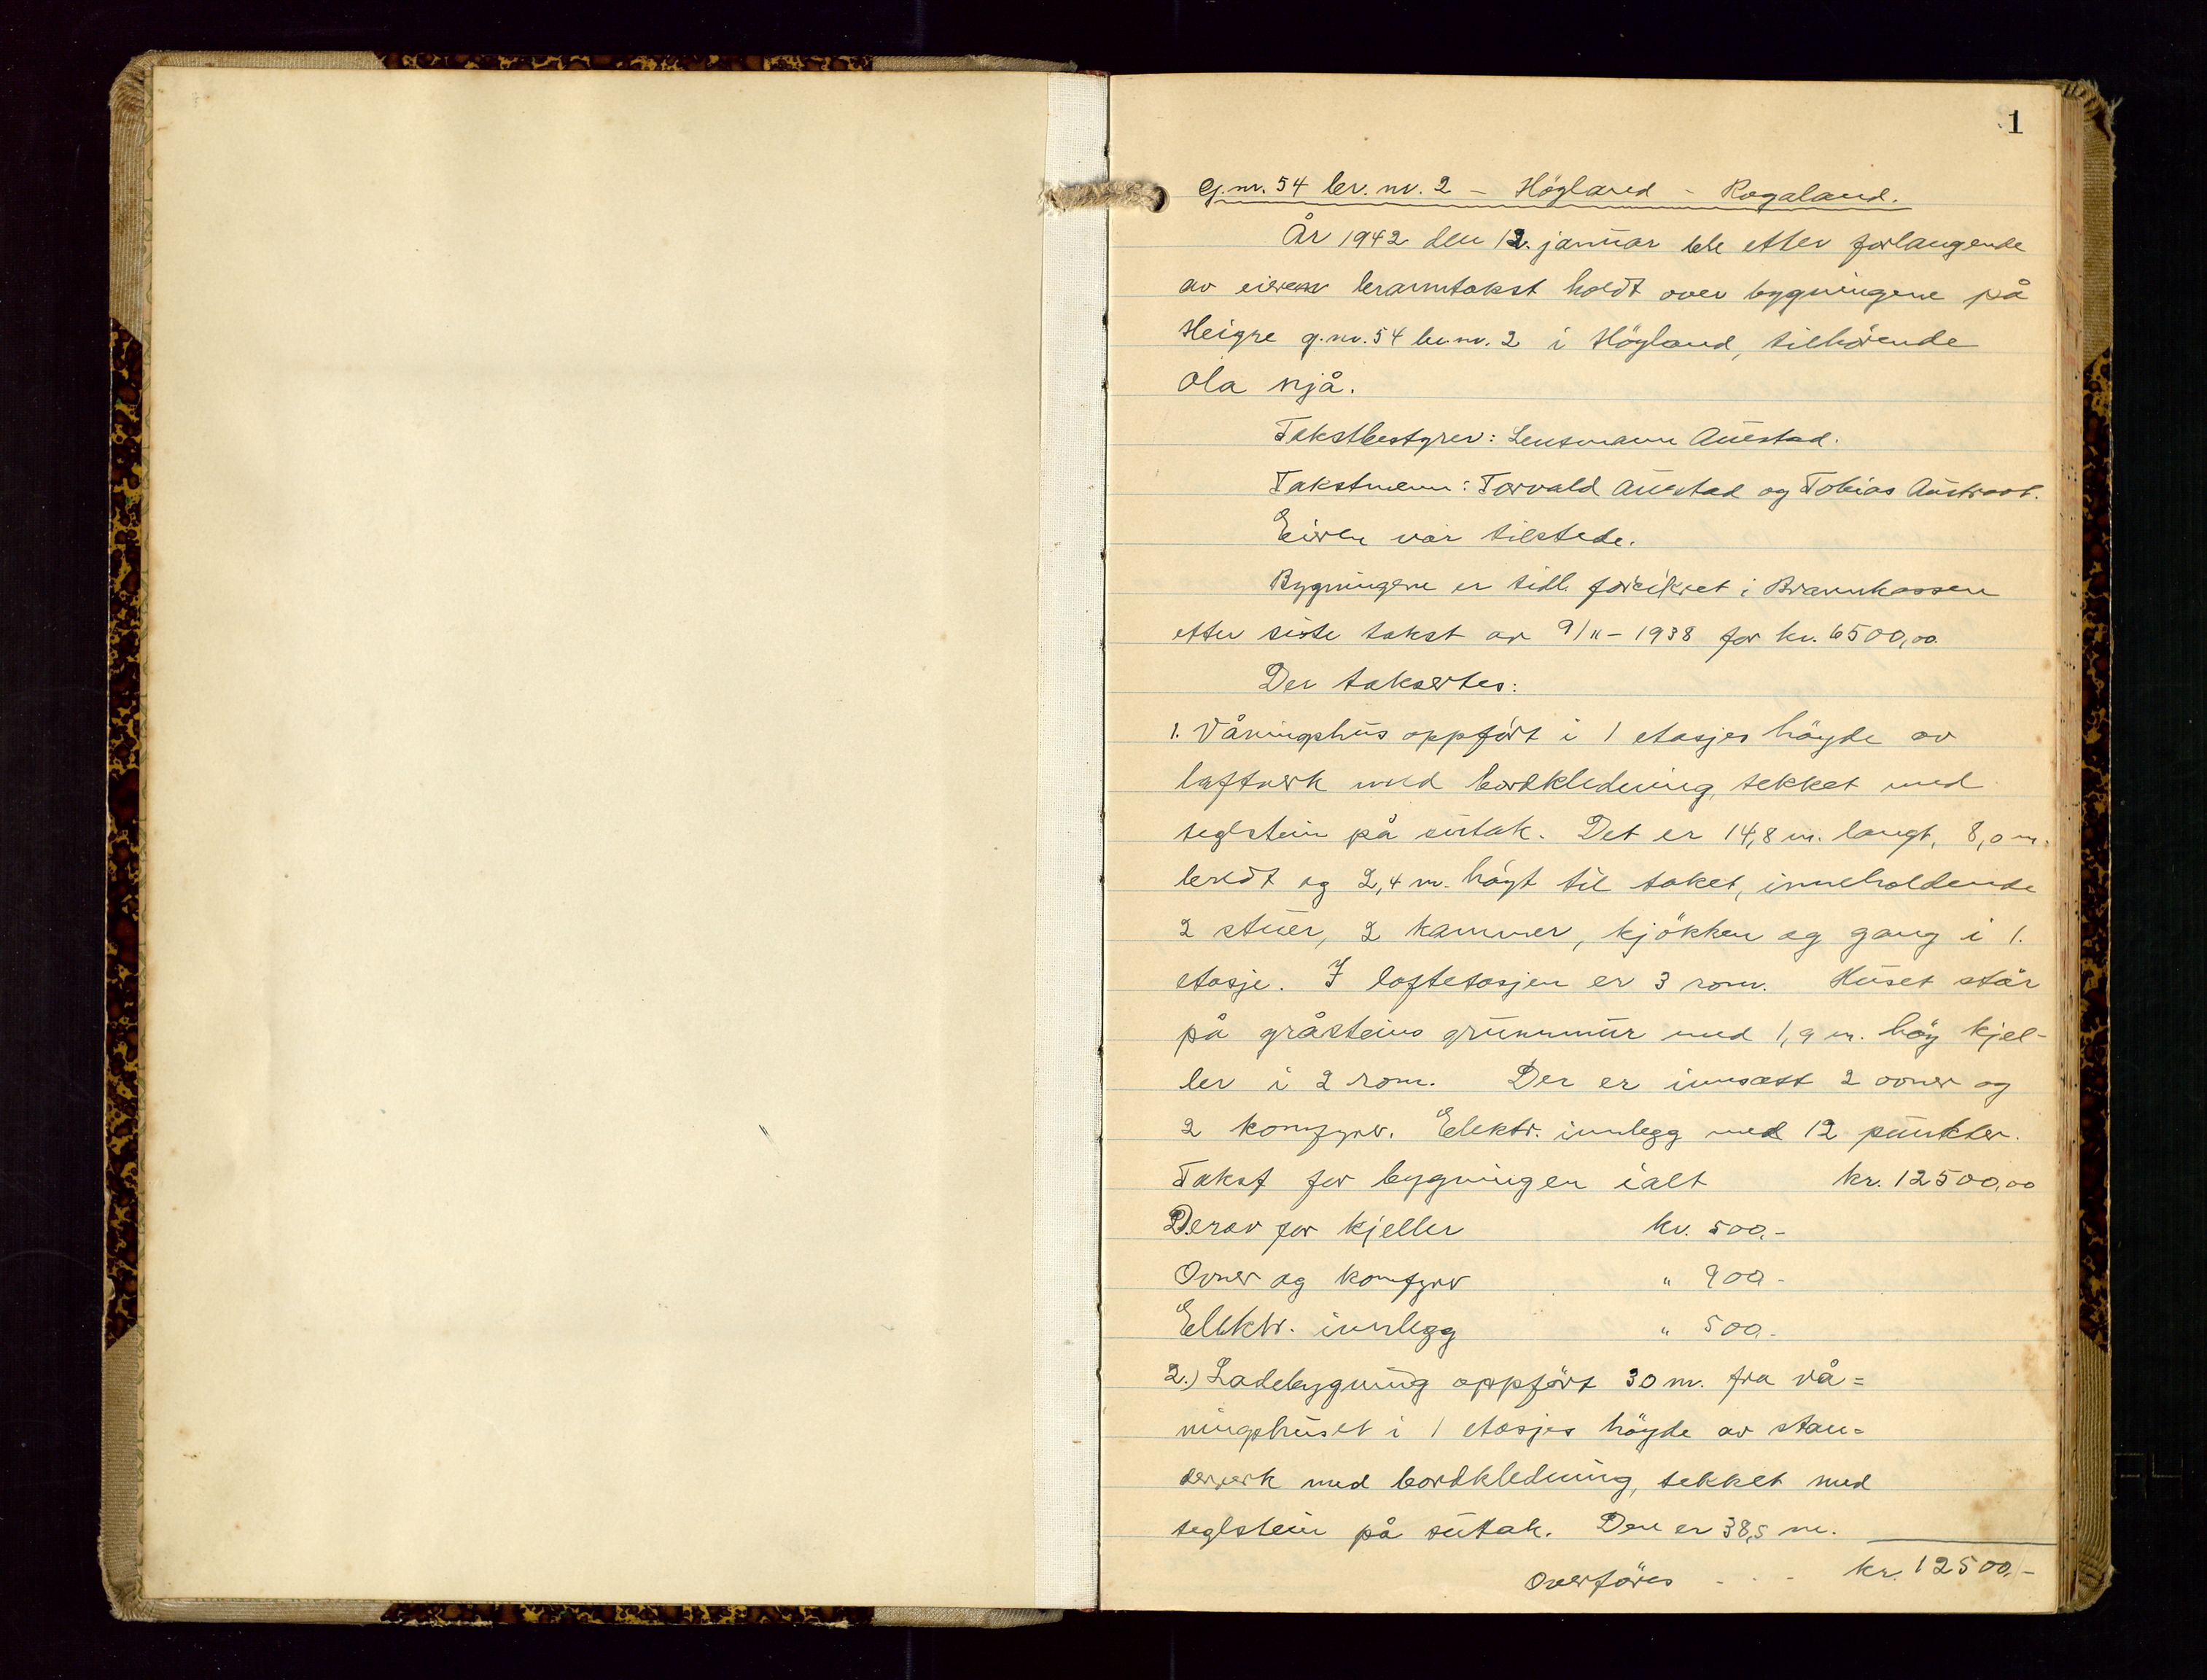 1
G.nr. 54 br. nr. 2 - Högland - Rogaland.
År 1942 den 12. januar ble etter forlangende
av eieren branntakst holdt over bygningene på
Heigre g.nr. 54 br.nr. 2 i Högland, tilhörende
Ola Njå.
Takstbestyrer: Lensmann Auestad.
Takstmenn: Torvald Auestad og Tobias Austraat.
Eiren var tilstede.
Bygningene er tidl. forsikret i Brannkassen
etter siste takst av 9/11 - 1938 for kr. 6500,00
Der taksertes:
1. Våningshus oppfört i 1 etasjes höyde av
laftverk med bordkledning, tekket med
teglstein på sutak. Det er 14,8 m. langt, 8,0 m.
bredt og 2,4 m. höyt til taket, inneholdende
2 stuer, 2 kammer, kjökken og gang i 1.
etasje. I loftetasjen er 3 rom. Huset står
på gråsteins grunnmur med 1,9 m. höy kjel-
ler i 2 rom. Der er innsatt 2 ovner og
2 komfyrer. Elektr. innlegg med 12 punkter.
Takst for bygningen ialt kr. 12500,00
Derav for kjeller kr. 500,-
Ovner og komfyrer " 900.-
Elektr. innlegg " 500.-
2.) Ladebygning oppfört 30 m. fra vå=
ningshuset i 1 etasjes höyde av stan=
derverk med bordkledning, tekket med
teglstein på sutak. Den er 38,5 m.
Overföres - - - kr. 12500,-